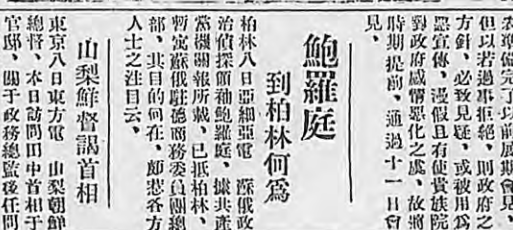 準備完了以前展期會見、
但以若過事拒絕、則政府之
方針、必致見疑、或被用爲
惡宣傳、漫假且有使貴族院
對政府感情惡化之處、故將
時期提前、通過十一日會
見、
鮑羅庭
到柏林何爲
柏林八日亞細亞電　蘇俄政
治偵探領袖鮑羅庭、據共產
黨機關報所載、已抵柏林、
暫寓蘇俄駐德商務委員團總
部、其目的何在、頗惹各方
人士之注目云、
山梨鮮督謁首相
東京八日東方電　山梨朝鮮
總督、本日訪問田中首相于
官邸、關于政務總監後任問